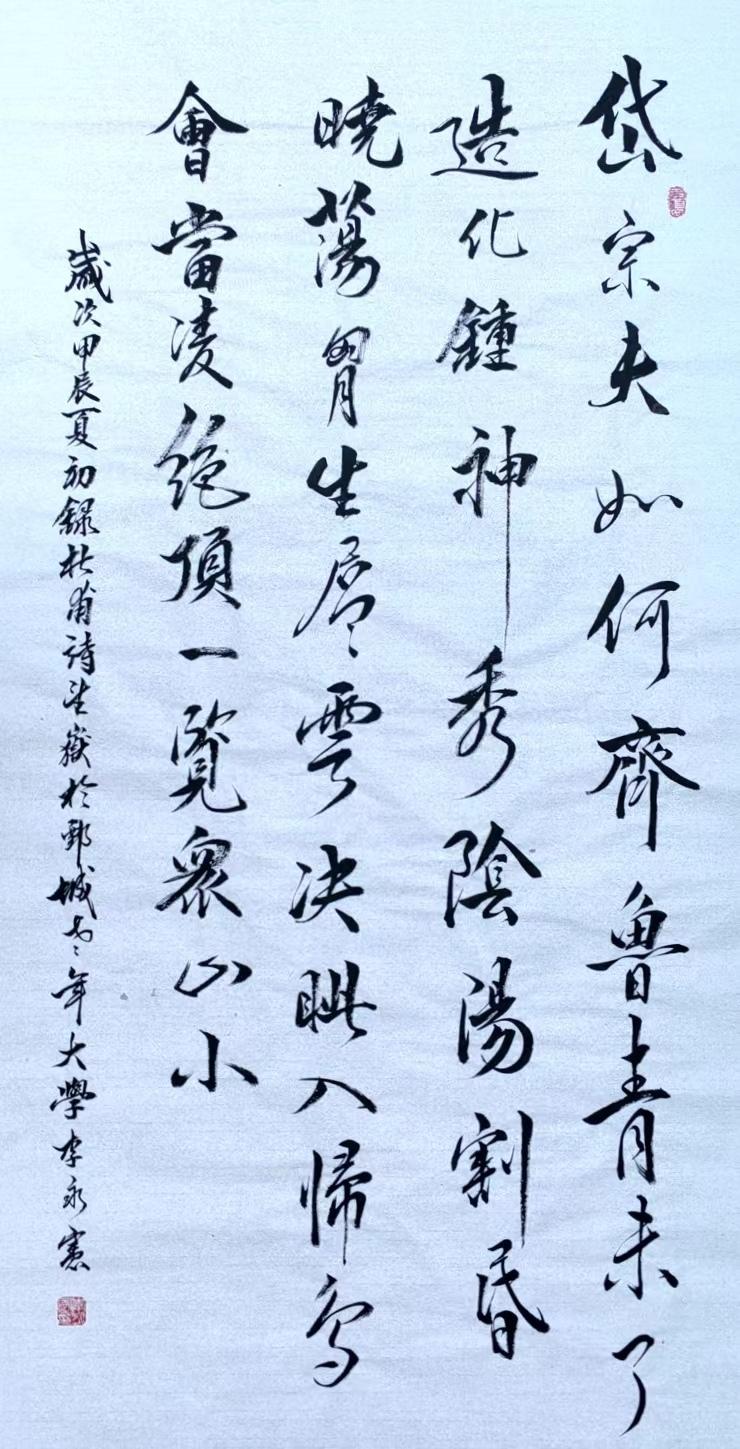 岱宗夫如何齊魯青未了
造化鍾神秀陰陽割昏
曉蕩胷生層雲決眦入歸鳥
會當凌絕頂一覽衆山小
歲次甲辰夏初錄杜甫詩望嶽於鄄城老年大學李永憲